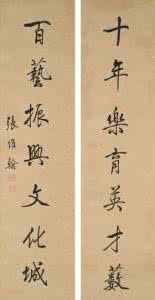 十年樂育英才藪
百藝振興文化城
張維翰